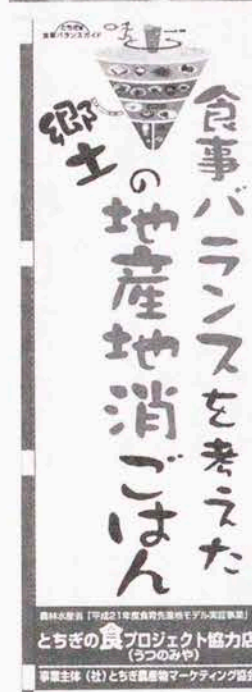 とちぎの
食事バランスガイド
食事バランスを考えた
郷土の地産地消ごはん
農林水産省「平成21年度食育先進地モデル実証事業」
とちぎの食プロジェクト協力店
(うつのみや)
事業主体（社）とちぎ農産物マーケティング協